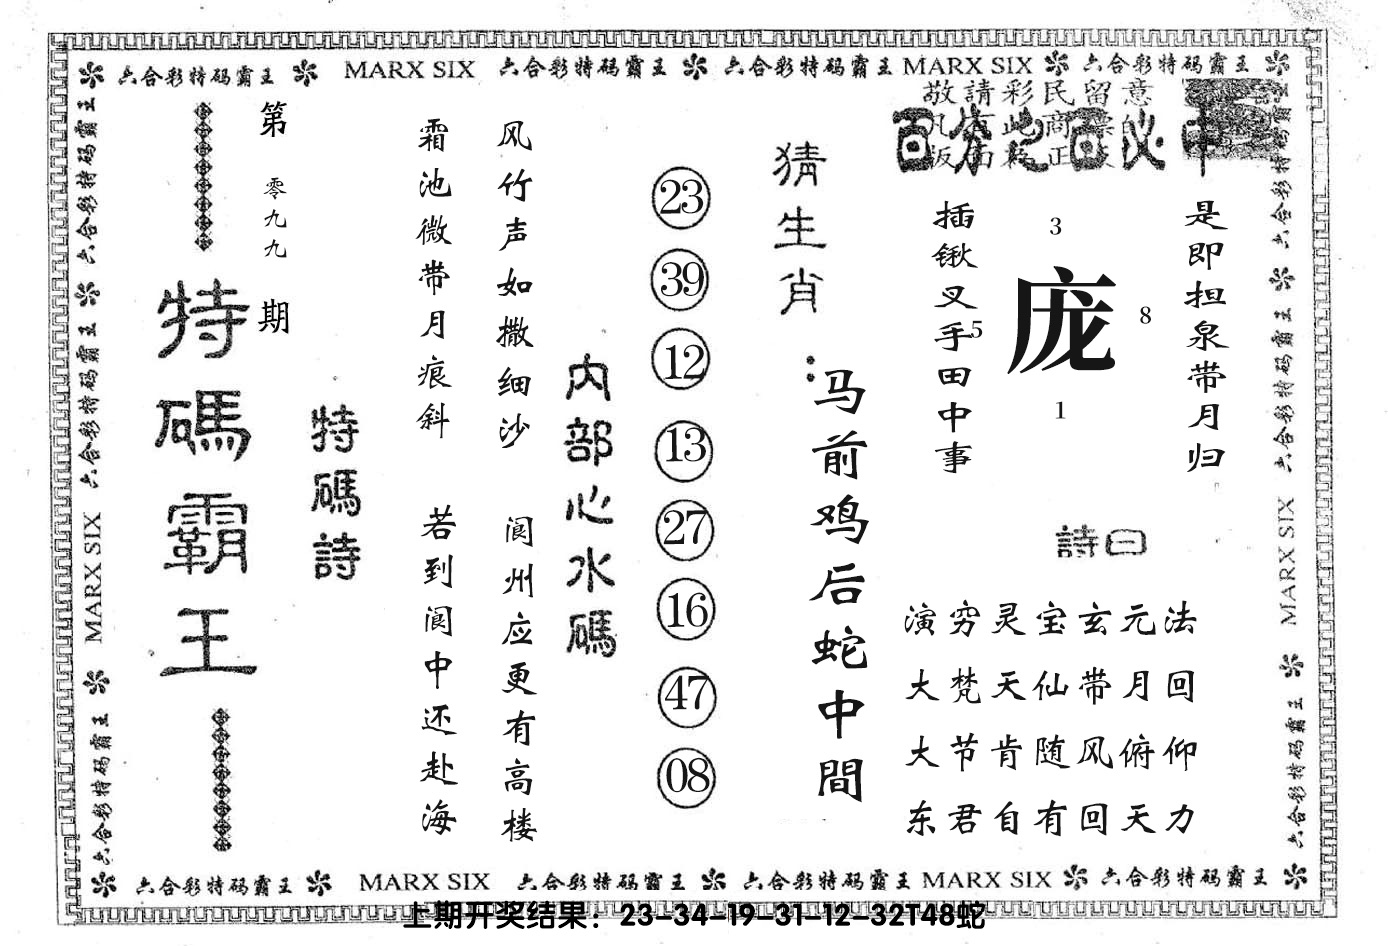 六合彩特码霸王 MARX SIX 六合彩特码霸王 六合彩特码霸王 MARX SIX 六合彩特码霸王
敬請彩民留意
百分之百必中
是即担泉带月归
插锹叉手田中事
3
庞
5
8
1
猜生肖：
马前鸡后蛇中間
詩曰
演穷灵宝玄元法
大梵天仙带月回
大节肯随风俯仰
东君自有回天力
内部心水碼
23
39
12
13
27
16
47
08
风竹声如撒细沙
霜池微带月痕斜
阆州应更有高楼
若到阆中还赴海
特碼詩
第零九九期
特碼霸王
六合彩特码霸王 六合彩特码霸王 MARX SIX 六合彩特码霸王
六合彩特码霸王 六合彩特码霸王 MARX SIX 六合彩特码霸王
六合彩特码霸王 MARX SIX 六合彩特码霸王 六合彩特码霸王 MARX SIX 六合彩特码霸王
上期开奖结果：23-34-19-31-12-32T48蛇